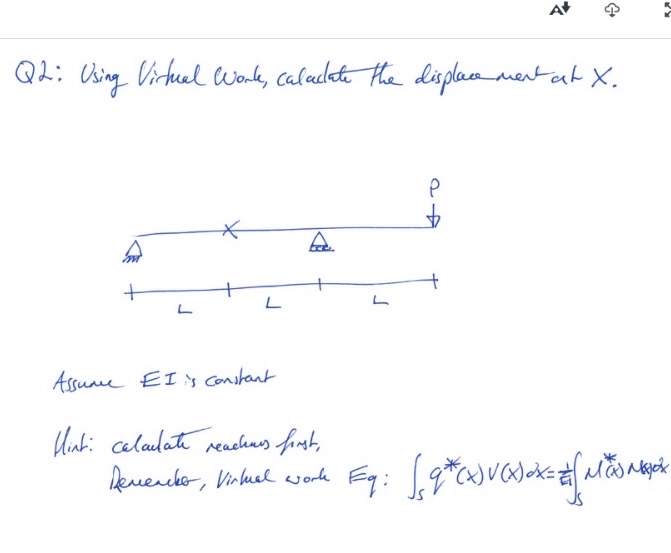 Q2: Using Virtual Work, calculate the displacement at X.
P
L
L
L
Assume EI is constant
Hint: calculate reactions first,
Remember, Virtual work Eq: ∫s q*(x) V(x) dx = 1/EI ∫s M*(x) M(x) dx